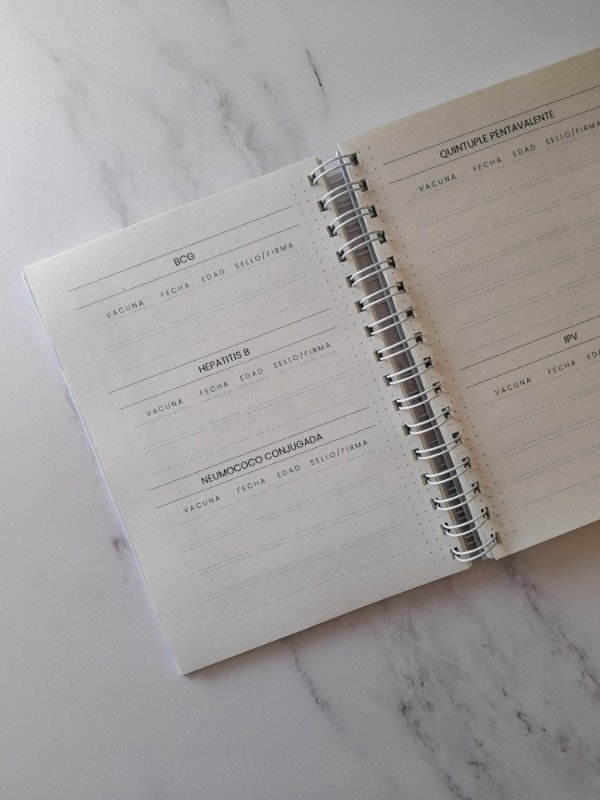 BCG
VACUNA FECHA EDAD SELLO/FIRMA
HEPATITIS B
VACUNA FECHA EDAD SELLO/FIRMA
NEUMOCOCO CONJUGADA
VACUNA FECHA EDAD SELLO/FIRMA
QUINTUPLE PENTAVALENTE
VACUNA FECHA EDAD SELLO/FIRMA
IPV
VACUNA FECHA EDAD